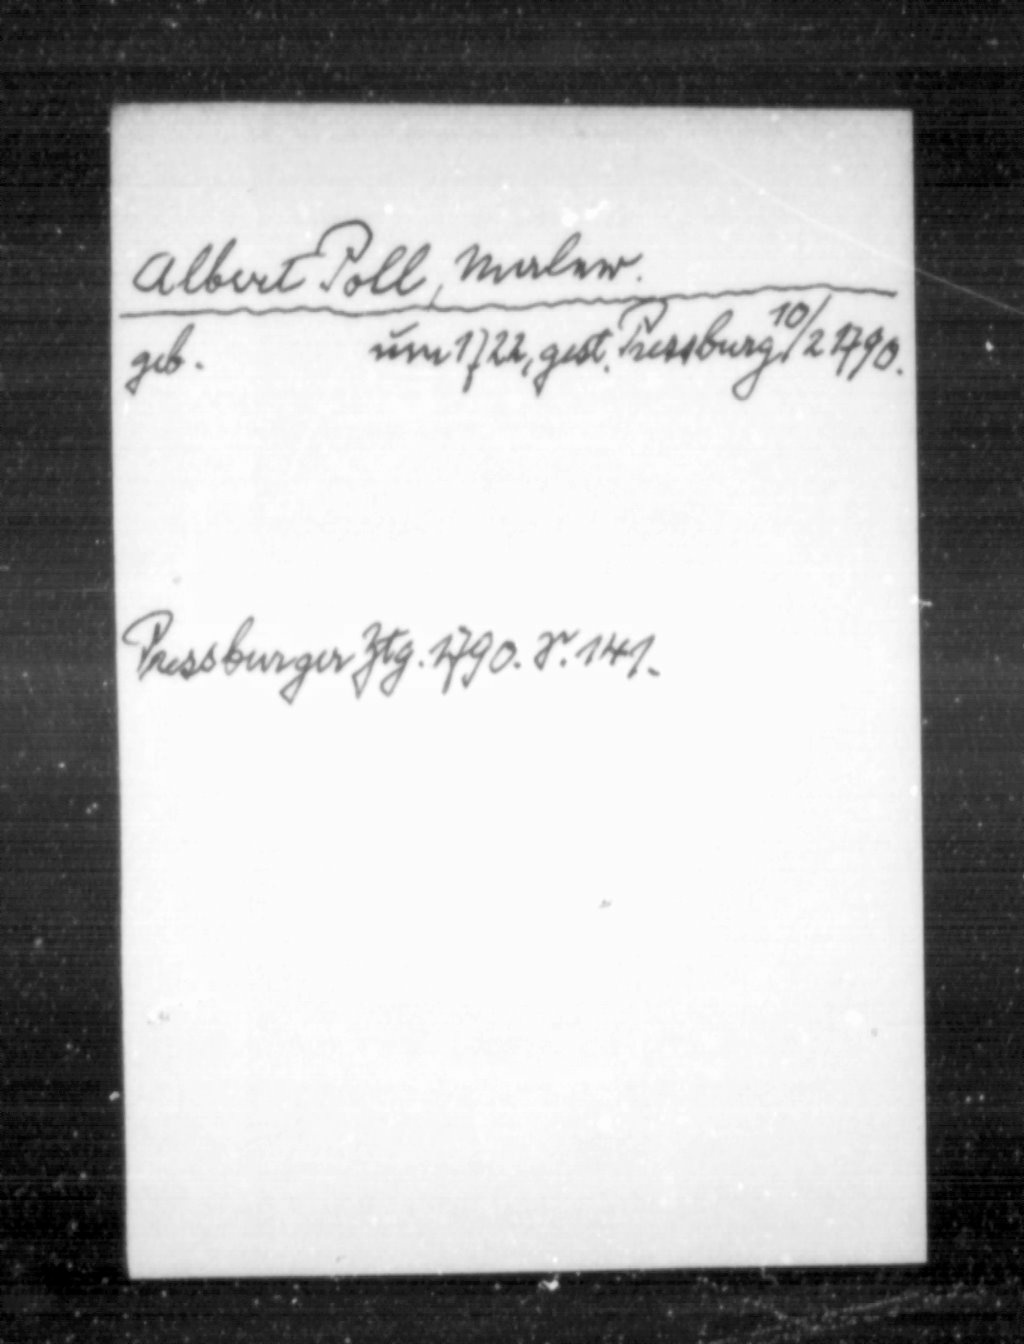 Albert Poll, Maler.
geb. um 1722, gest. Pressburg 10/2 1790.
Pressburger Ztg. 1790. S. 141.